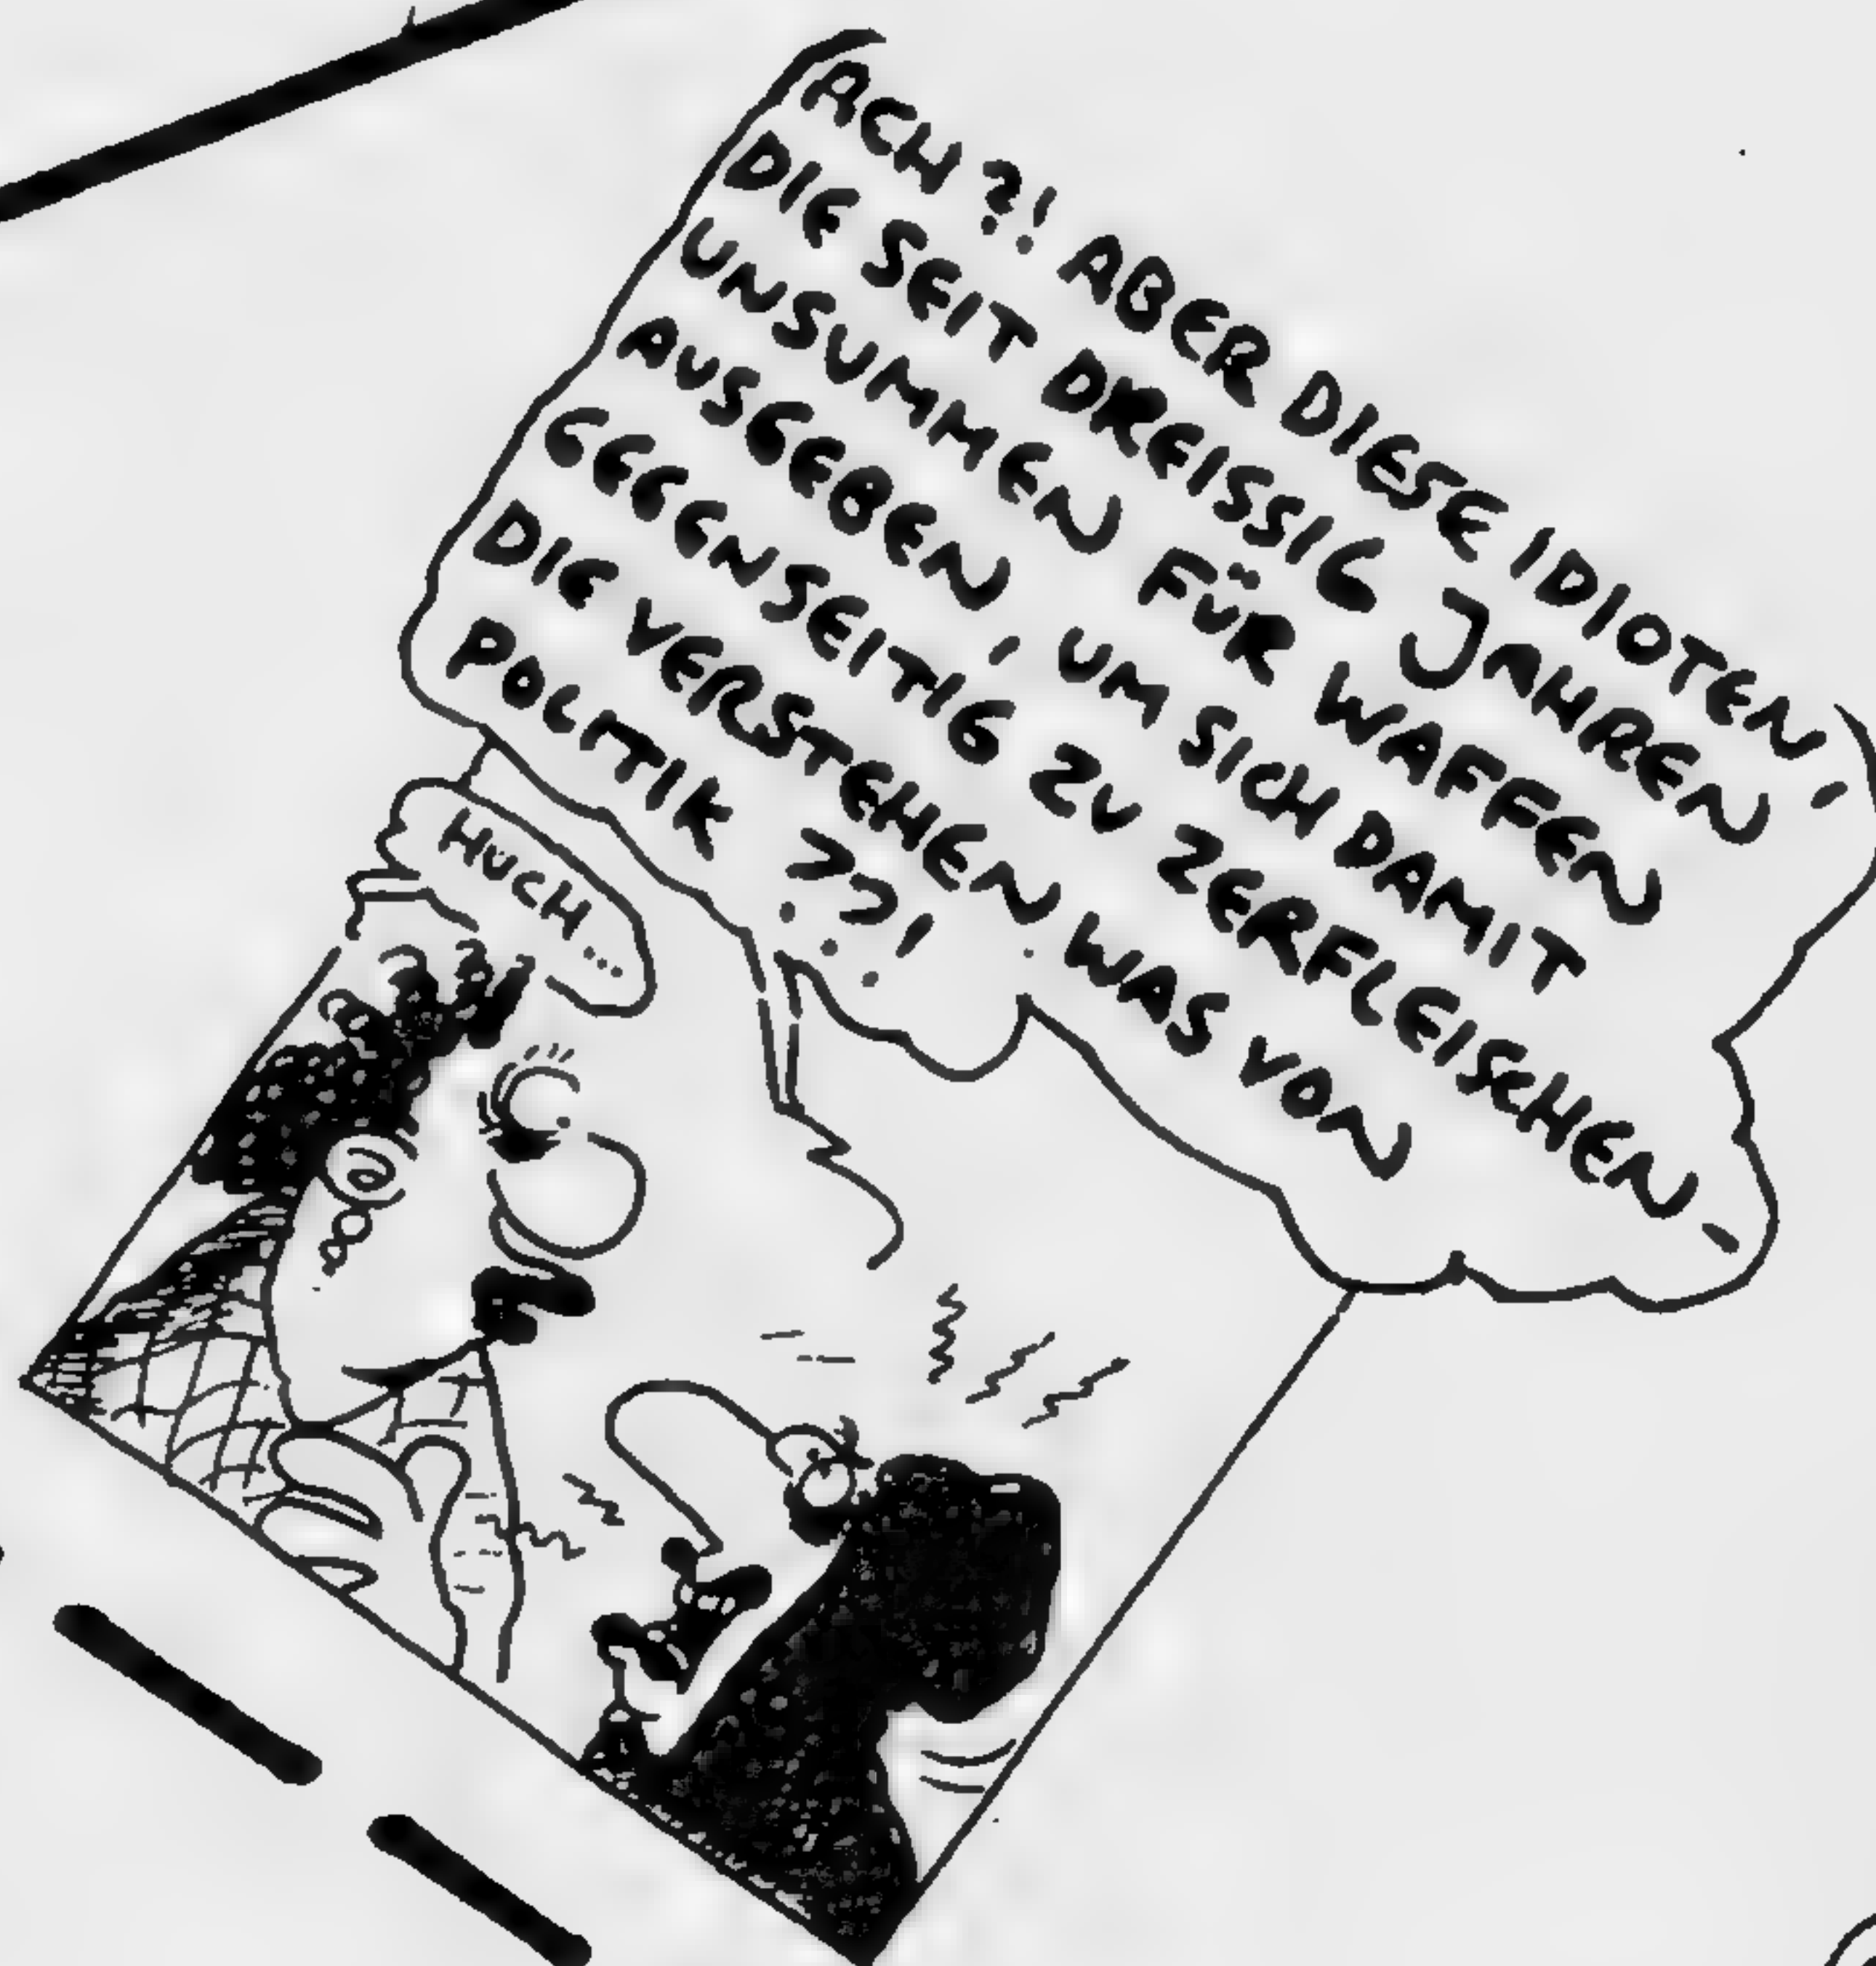 ACH ?! ABER DIESE IDIOTEN,
DIE SEIT DREISSIG JAHREN
UNSUMMEN FÜR WAFFEN
AUSGEBEN, UM SICH DAMIT
GEGENSEITIG ZU ZERFLEISCHEN -
DIE VERSTEHEN WAS VON
POLITIK ??!
HUCH...